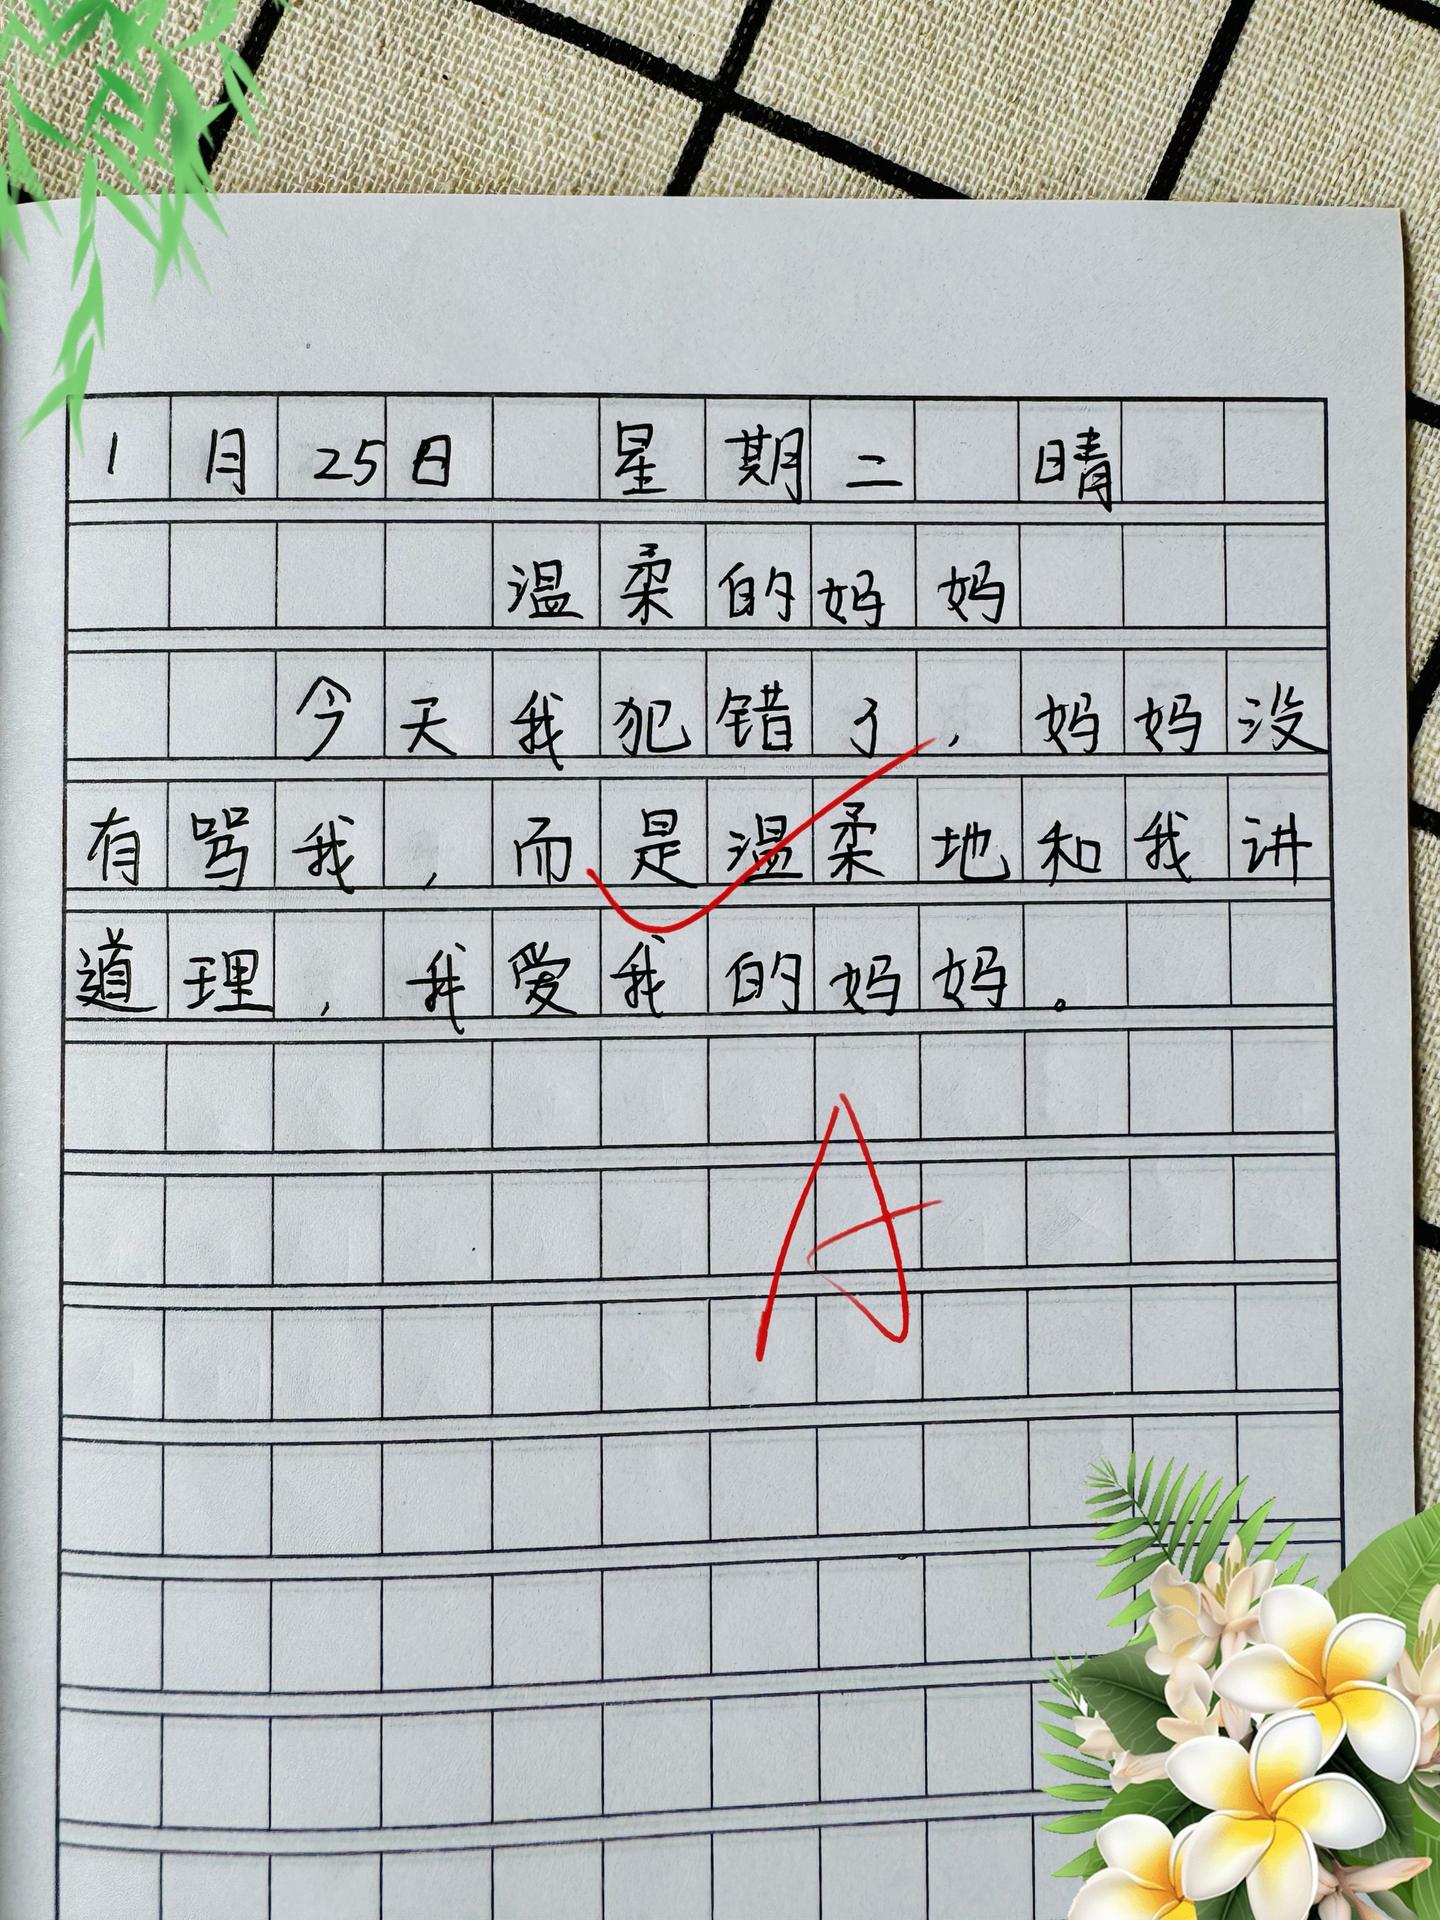 1月25日 星期二 晴
温柔的妈妈
今天我犯错了，妈妈没
有骂我，而是温柔地和我讲
道理，我爱我的妈妈。
A